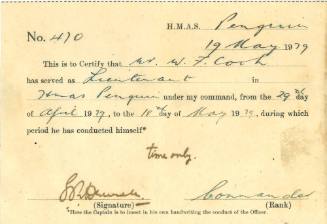 H.M.A.S. Penguin
No. 410
19 May 1939
This is to Certify that Mr. W. F. Cook
has served as Lieutenant in
HMAS Penguin under my command, from the 29th day
of April 1939, to the 18th day of May 1939, during which
period he has conducted himself*
time only.
Commander
(Signature) (Rank)
*Here the Captain is to insert in his own handwriting the conduct of the Officer.